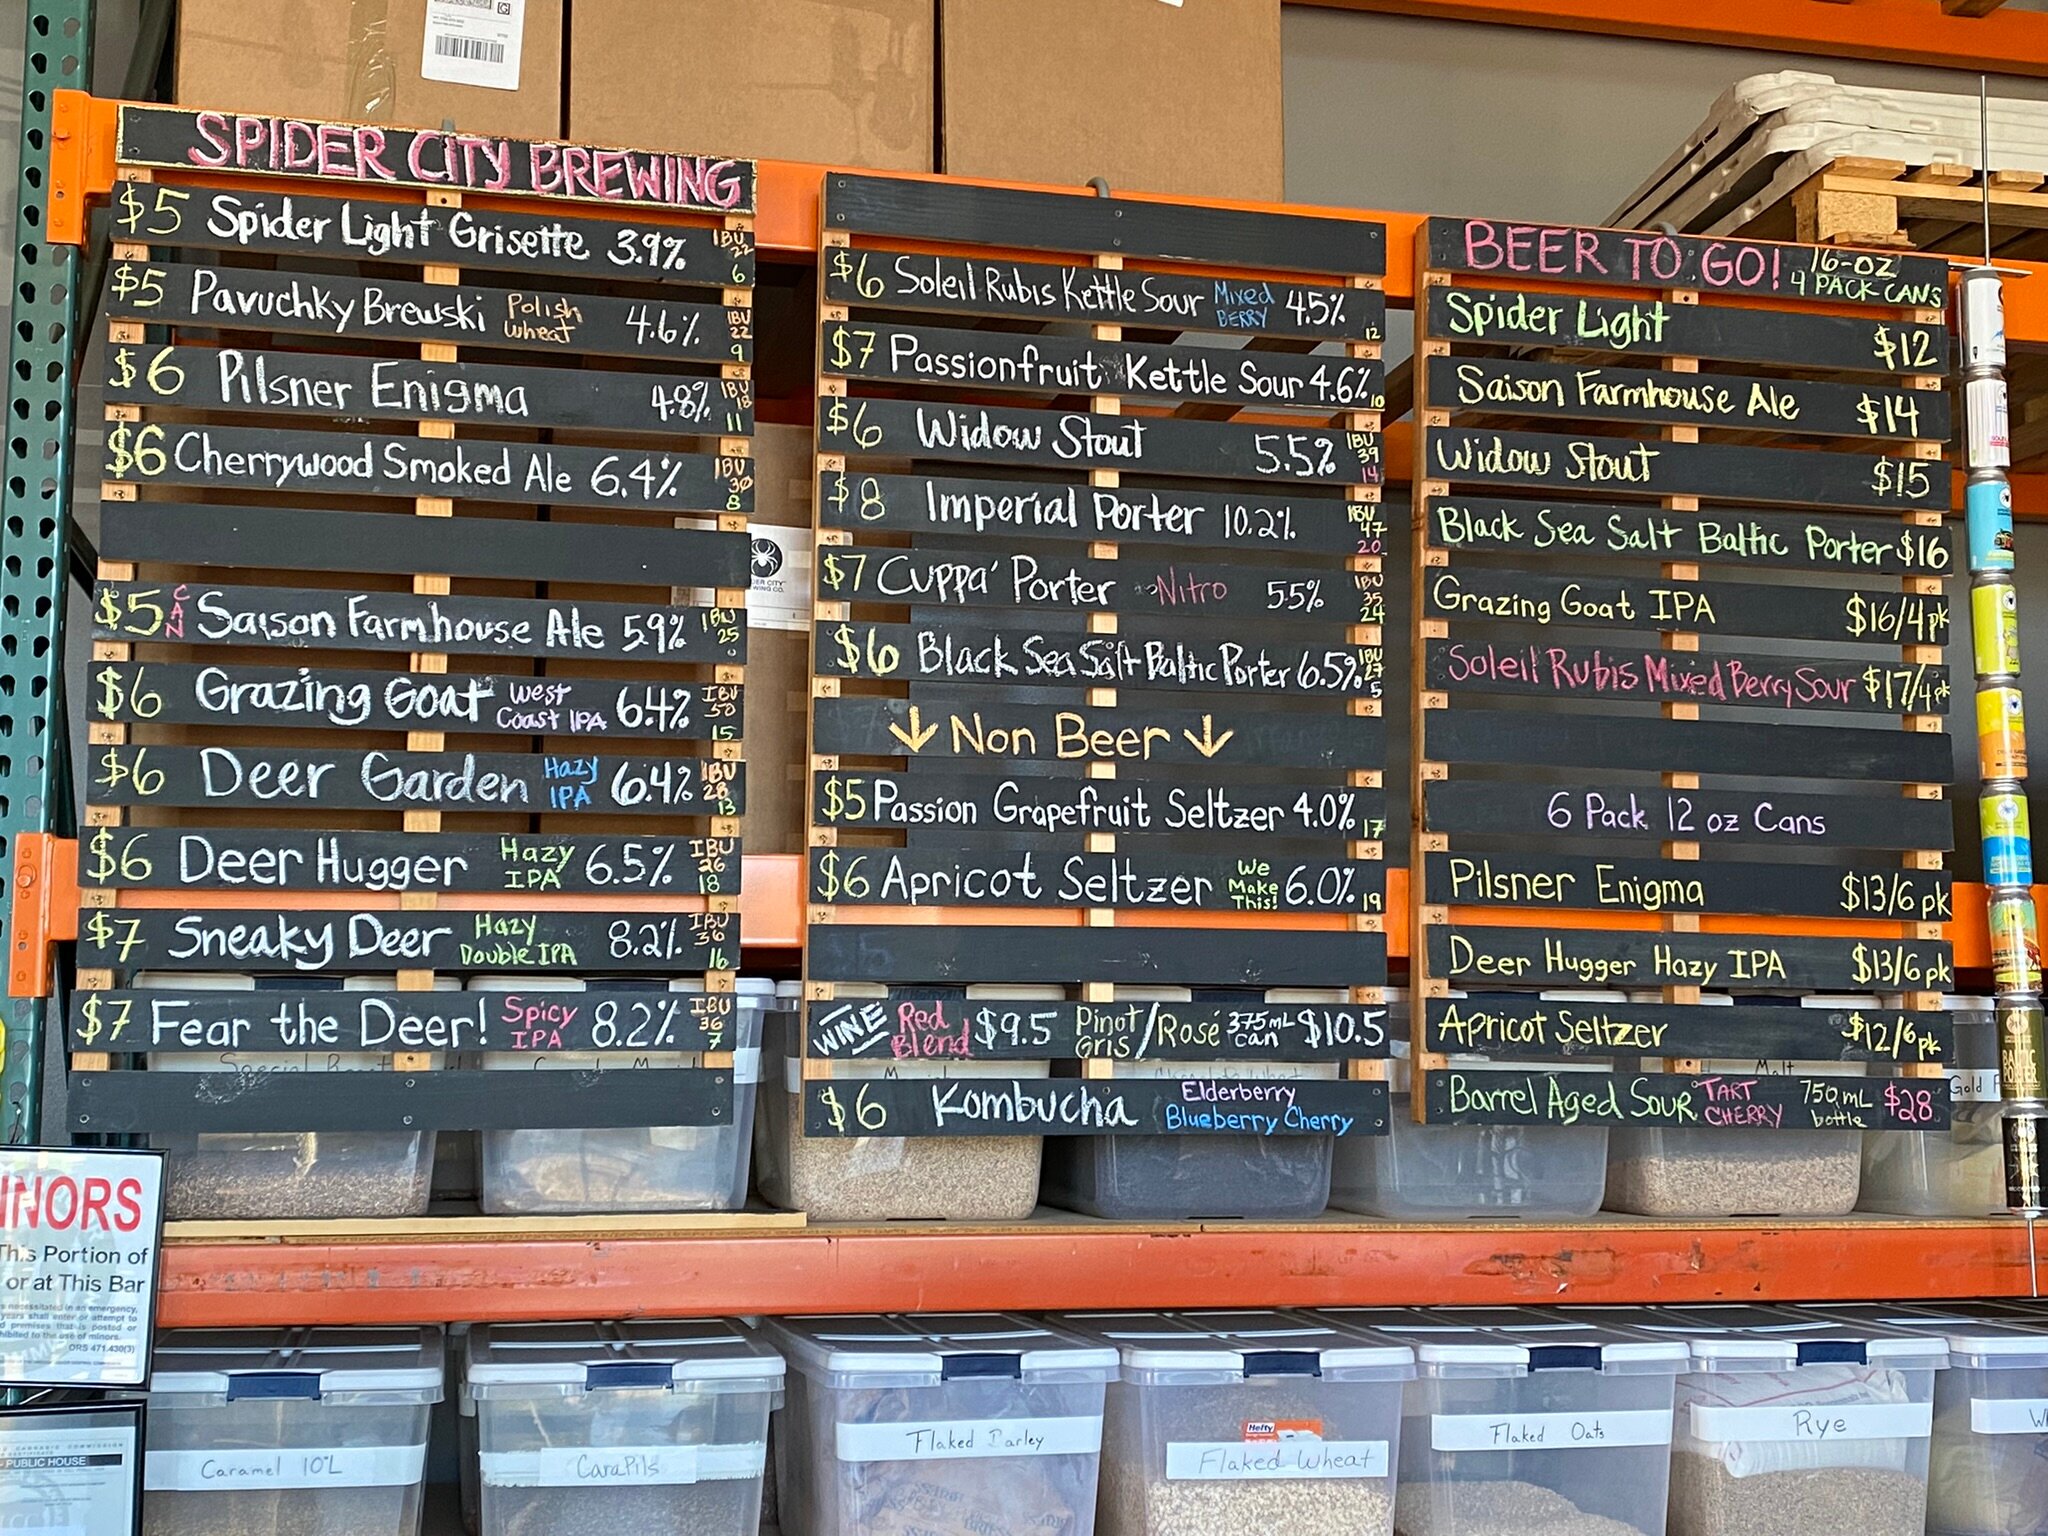 SPIDER CITY BREWING
$5 Spider Light Grisette 3.9% IBU 22 6
$5 Pavuchky Brewski Polish Wheat 4.6% IBU 22 9
$6 Pilsner Enigma 4.8% IBU 18 11
$6 Cherrywood Smoked Ale 6.4% IBU 30 8
$5 CAN Saison Farmhouse Ale 5.9% IBU 25
$6 Grazing Goat West Coast IPA 6.4% IBU 50 15
$6 Deer Garden Hazy IPA 6.4% IBU 28 13
$6 Deer Hugger Hazy IPA 6.5% IBU 26 18
$7 Sneaky Deer Hazy Double IPA 8.2% IBU 36 16
$7 Fear the Deer! Spicy IPA 8.2% IBU 36 7
$6 Soleil Rubis Kettle Sour Mixed BERRY 4.5% 12
$7 Passionfruit Kettle Sour 4.6% 10
$6 Widow Stout 5.5% IBU 39 14
$8 Imperial Porter 10.2% IBU 47 20
$7 Cuppa' Porter Nitro 55% IBU 35 24
$6 Black Sea Salt Baltic Porter 6.5% IBU 27 5
↓ Non Beer ↓
$5 Passion Grapefruit Seltzer 4.0% 17
$6 Apricot Seltzer We Make This! 6.0% 19
WINE Red Blend $9.5 Pinot Gris/Rosé 375mL can $10.5
$6 Kombucha Elderberry Blueberry Cherry
BEER TO GO! 16-OZ 4 PACK CANS
Spider Light $12
Saison Farmhouse Ale $14
Widow Stout $15
Black Sea Salt Baltic Porter $16
Grazing Goat IPA $16/4pk
Soleil Rubis Mixed Berry Sour $17/4pk
6 Pack 12 oz Cans
Pilsner Enigma $13/6 pk
Deer Hugger Hazy IPA $13/6 pk
Apricot Seltzer $12/6pk
Barrel Aged Sour TART CHERRY 750mL bottle $28
Malt
Gold
This Portion of
or at This Bar
ORS 471.430(3)
PUBLIC HOUSE
Caramel 10°L
CaraPils
Flaked Barley
Hefty
Flaked Wheat
Flaked Oats
Rye